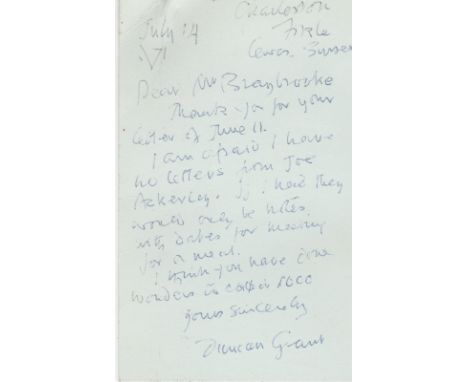 July 14
Charleston
Firle
Lewes. Sussex
Dear Mr Braybrooke
Thank you for your
letter of June 11.
I am afraid I have
no letters from Joe
Ackerley. If I had they
would only be notes
with dates for meeting
for a meal.
I think you have done
wonders in
yours sincerely
Duncan Grant